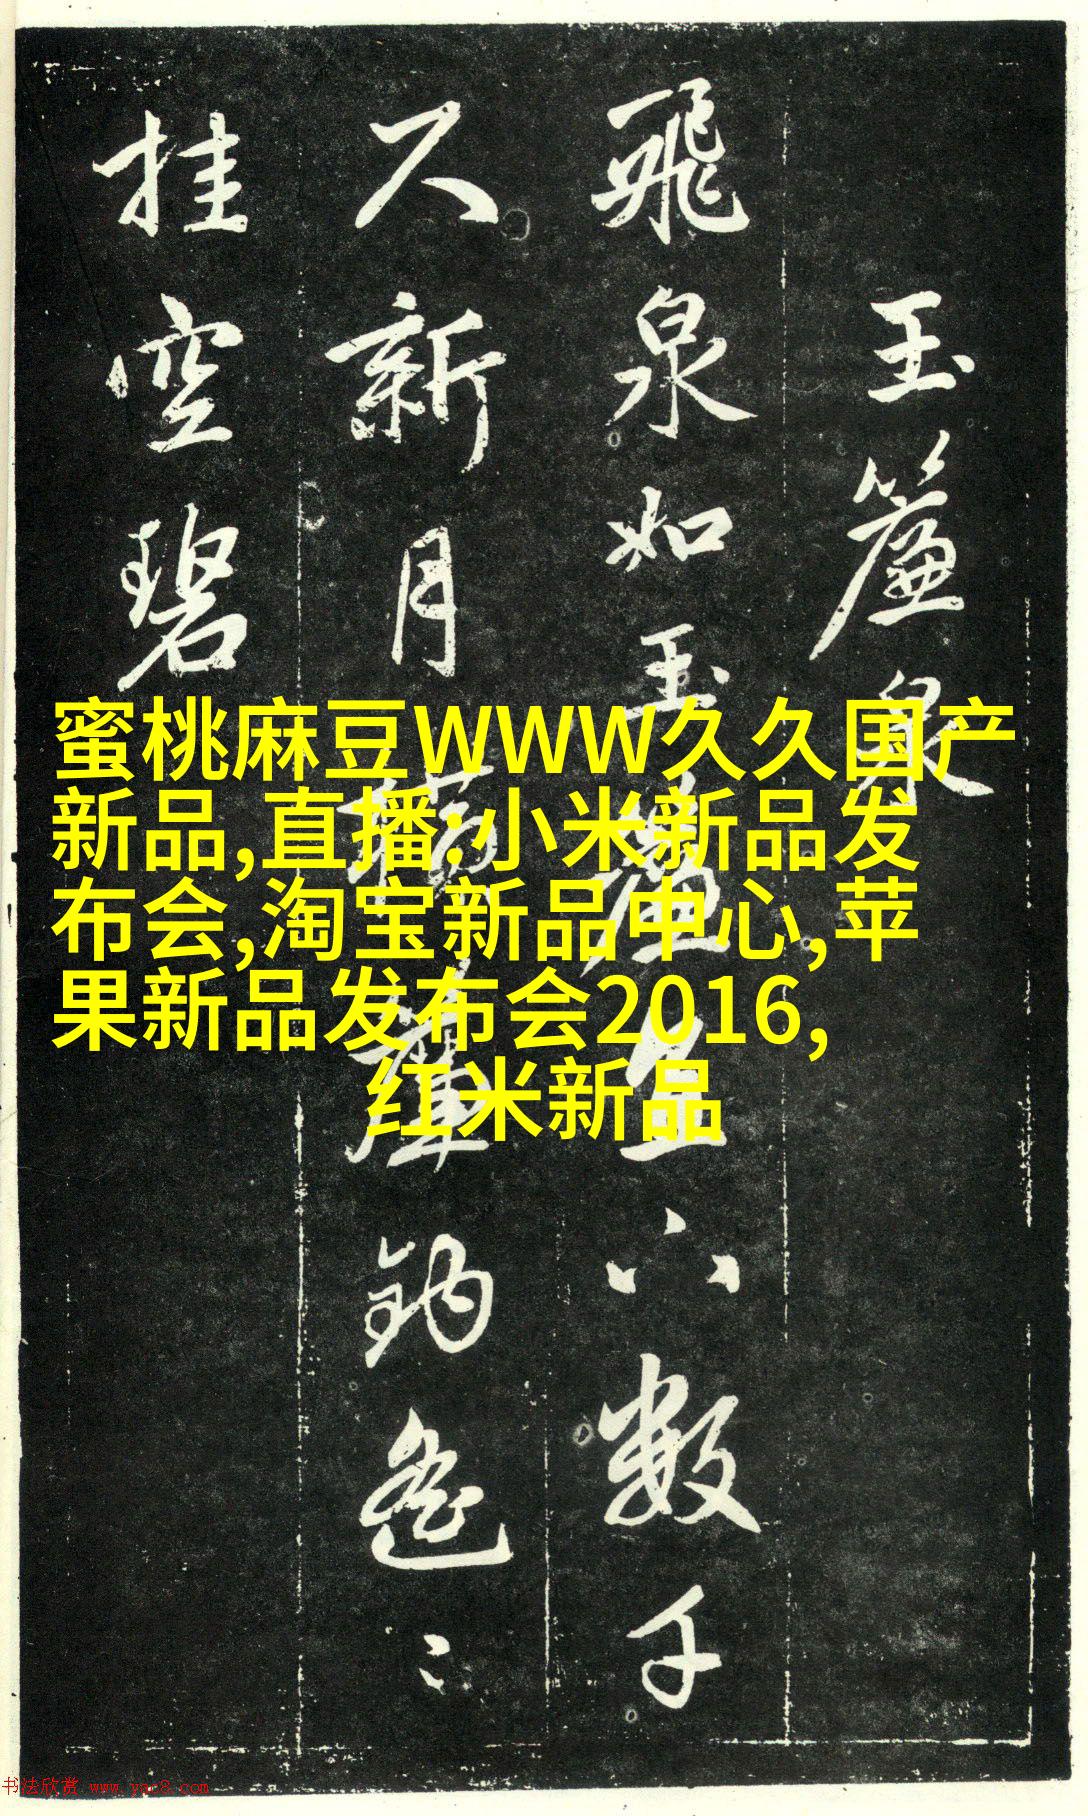 玉簾泉
飛泉如玉簾直下數千
尺新月橫簾鉤遙〻
挂空碧
蜜桃麻豆WWW久久国产
新品,直播:小米新品发
布会,淘宝新品中心,苹
果新品发布会2016,
红米新品
书法欣赏 www.yac8.com